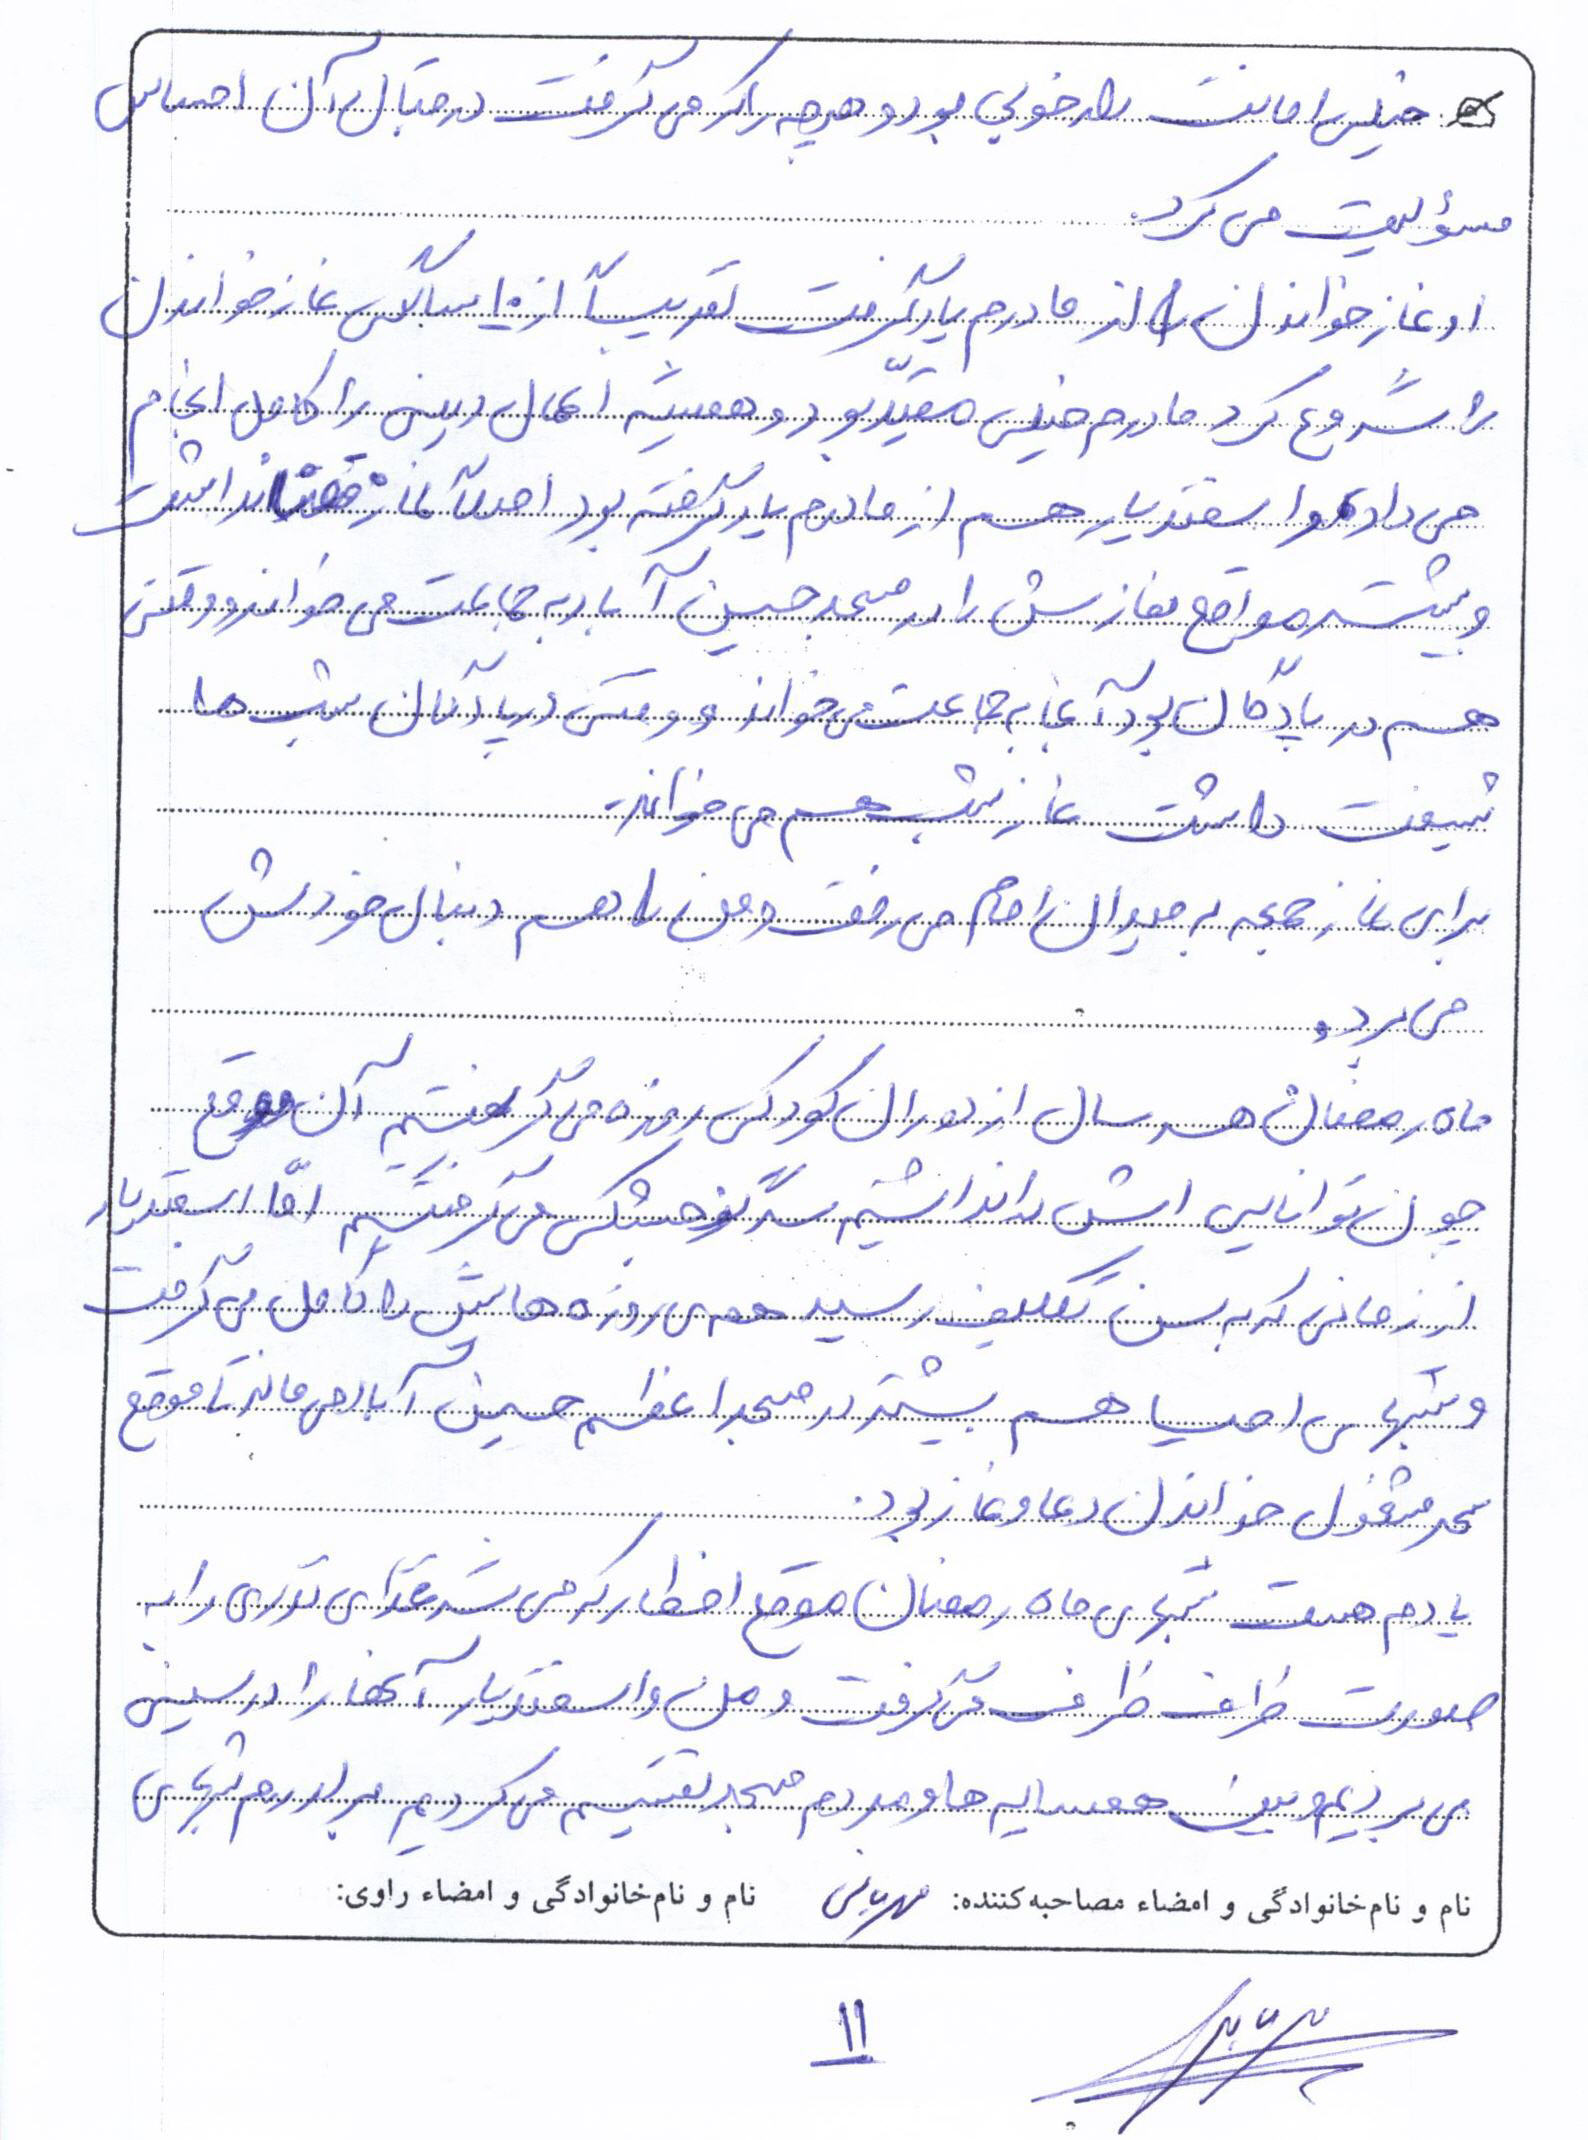 خیلی امانت دار خوبی بود و هرچه را که می گرفت در قبال آن احساس
مسؤلیت می کرد.
او نماز خواندن را از مادرم یاد گرفت تقریباً از ۱۰ سالگی نماز خواندن
را شروع کرد مادرم خیلی مقیّد بود و همیشه اعمال دینی را کامل انجام
می داد و اسفندیار هم از مادرم یاد گرفته بود اصلاً نماز قضا نداشت
و بیشتر مواقع نمازش را در مسجد حسین آباد به جماعت می خواند و وقتی
هم در پادگان بود آنجا به جماعت می خواند و وقتی در پادگان شب ها
شیفت داشت نماز شب هم می خواند.
برای نماز جمعه به میدان امام می رفت و من را هم دنبال خودش
می برد.
ماه رمضان هر سال از دوران کودکی روزه می گرفتیم آن موقع
چون توانایی اش را نداشتیم سرگنجشکی می گرفتیم امّا اسفندیار
از زمانی که به سن تکلیف رسید همه ی روزه هایش را کامل می گرفت
و شبهای احیا هم بیشتر در مسجد اعظم حسین آباد می ماند تا موقع
سحر مشغول خواندن دعا و نماز بود.
یادم هست شبهای ماه رمضان موقع افطار که می شد غذای نذری را به
صورت ظرف ظرف می گرفت و من و اسفندیار آنها را در سینی
می بردیم و بین همسایه ها و مردم مسجد تقسیم می کردیم برادرم شبهای
نام و نام‌خانوادگی و امضاء مصاحبه‌کننده: مهربانی نام و نام‌خانوادگی و امضاء راوی:
۱۱